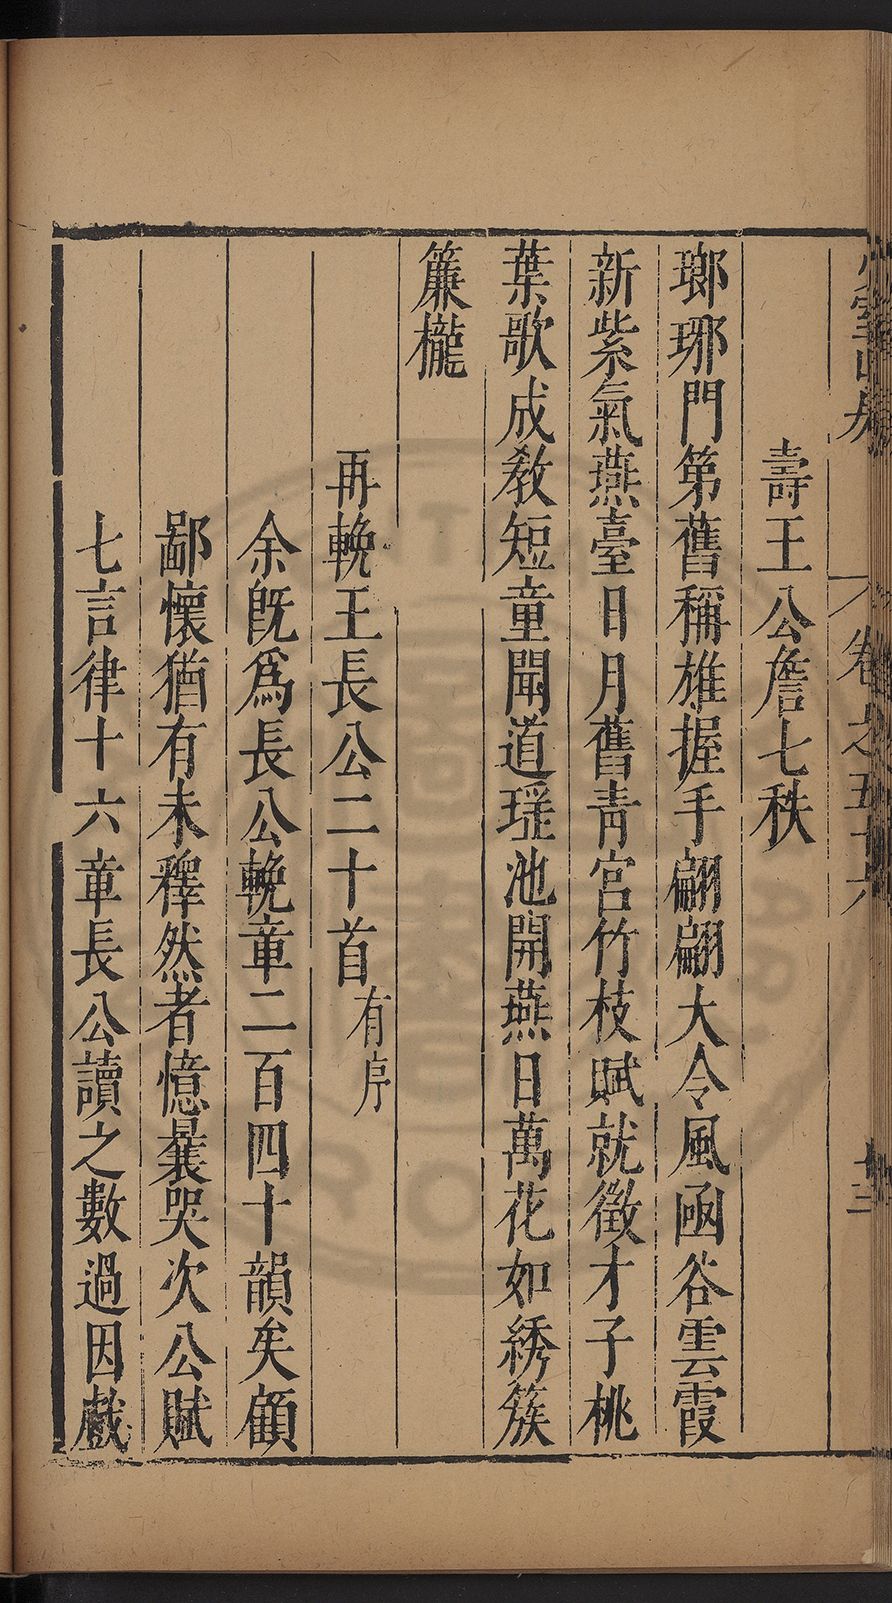 卷之五十六
十三
壽王公詹七秩
瑯琊門第舊稱雄握手翩翩大令風函谷雲霞
新紫氣燕臺日月舊青宮竹枝賦就徵才子桃
葉歌成教短童聞道瑶池開燕日萬花如綉簇
簾櫳
再輓王長公二十首有序
余旣爲長公輓章二百四十韻矣顧
鄙懷猶有未釋然者憶曩哭次公賦
七言律十六章長公讀之數過因戲